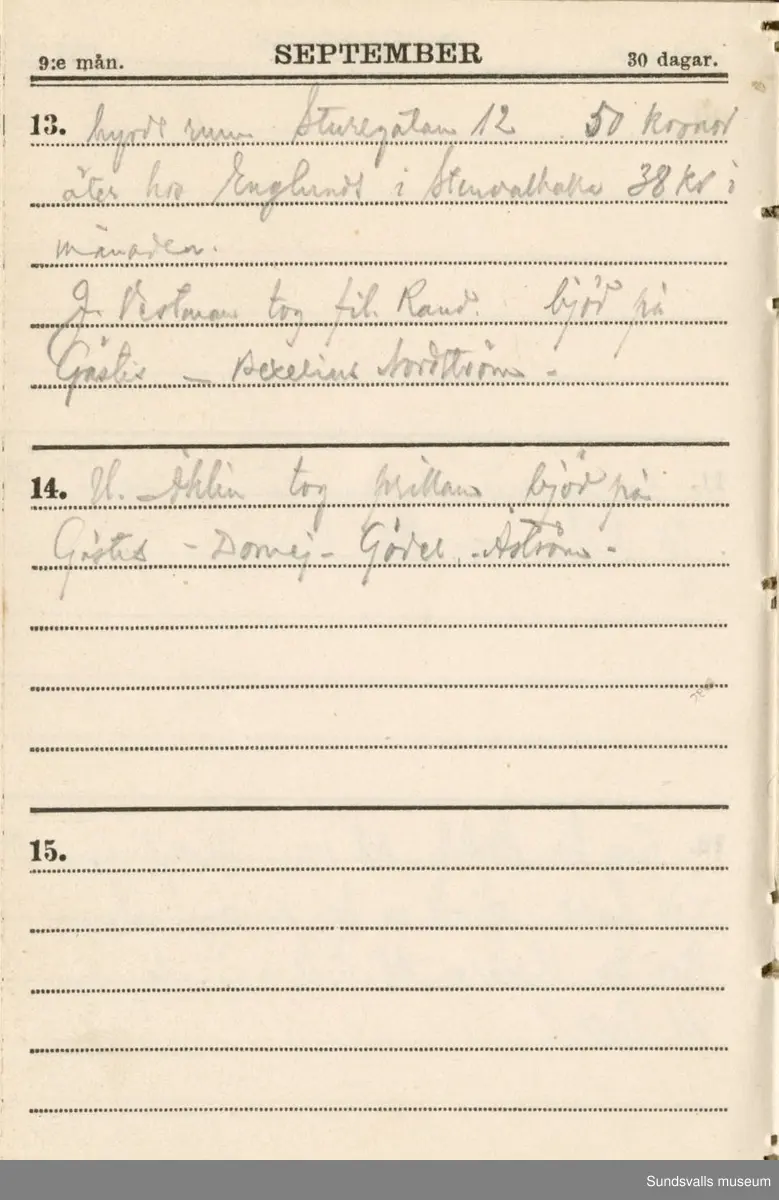 9:e mån. SEPTEMBER 30 dagar.
13. hyrde rum Sturegatan 12 50 kronor
äter hos Englunds i 38 kr i
månaden.
J. Vestman tog fil. Kand. bjöd på
Gästis — Nordström -
14. H. Åhlin tog bjöd på
Gästis - - Gödel, - Åström -
15.
Sundsvalls museum